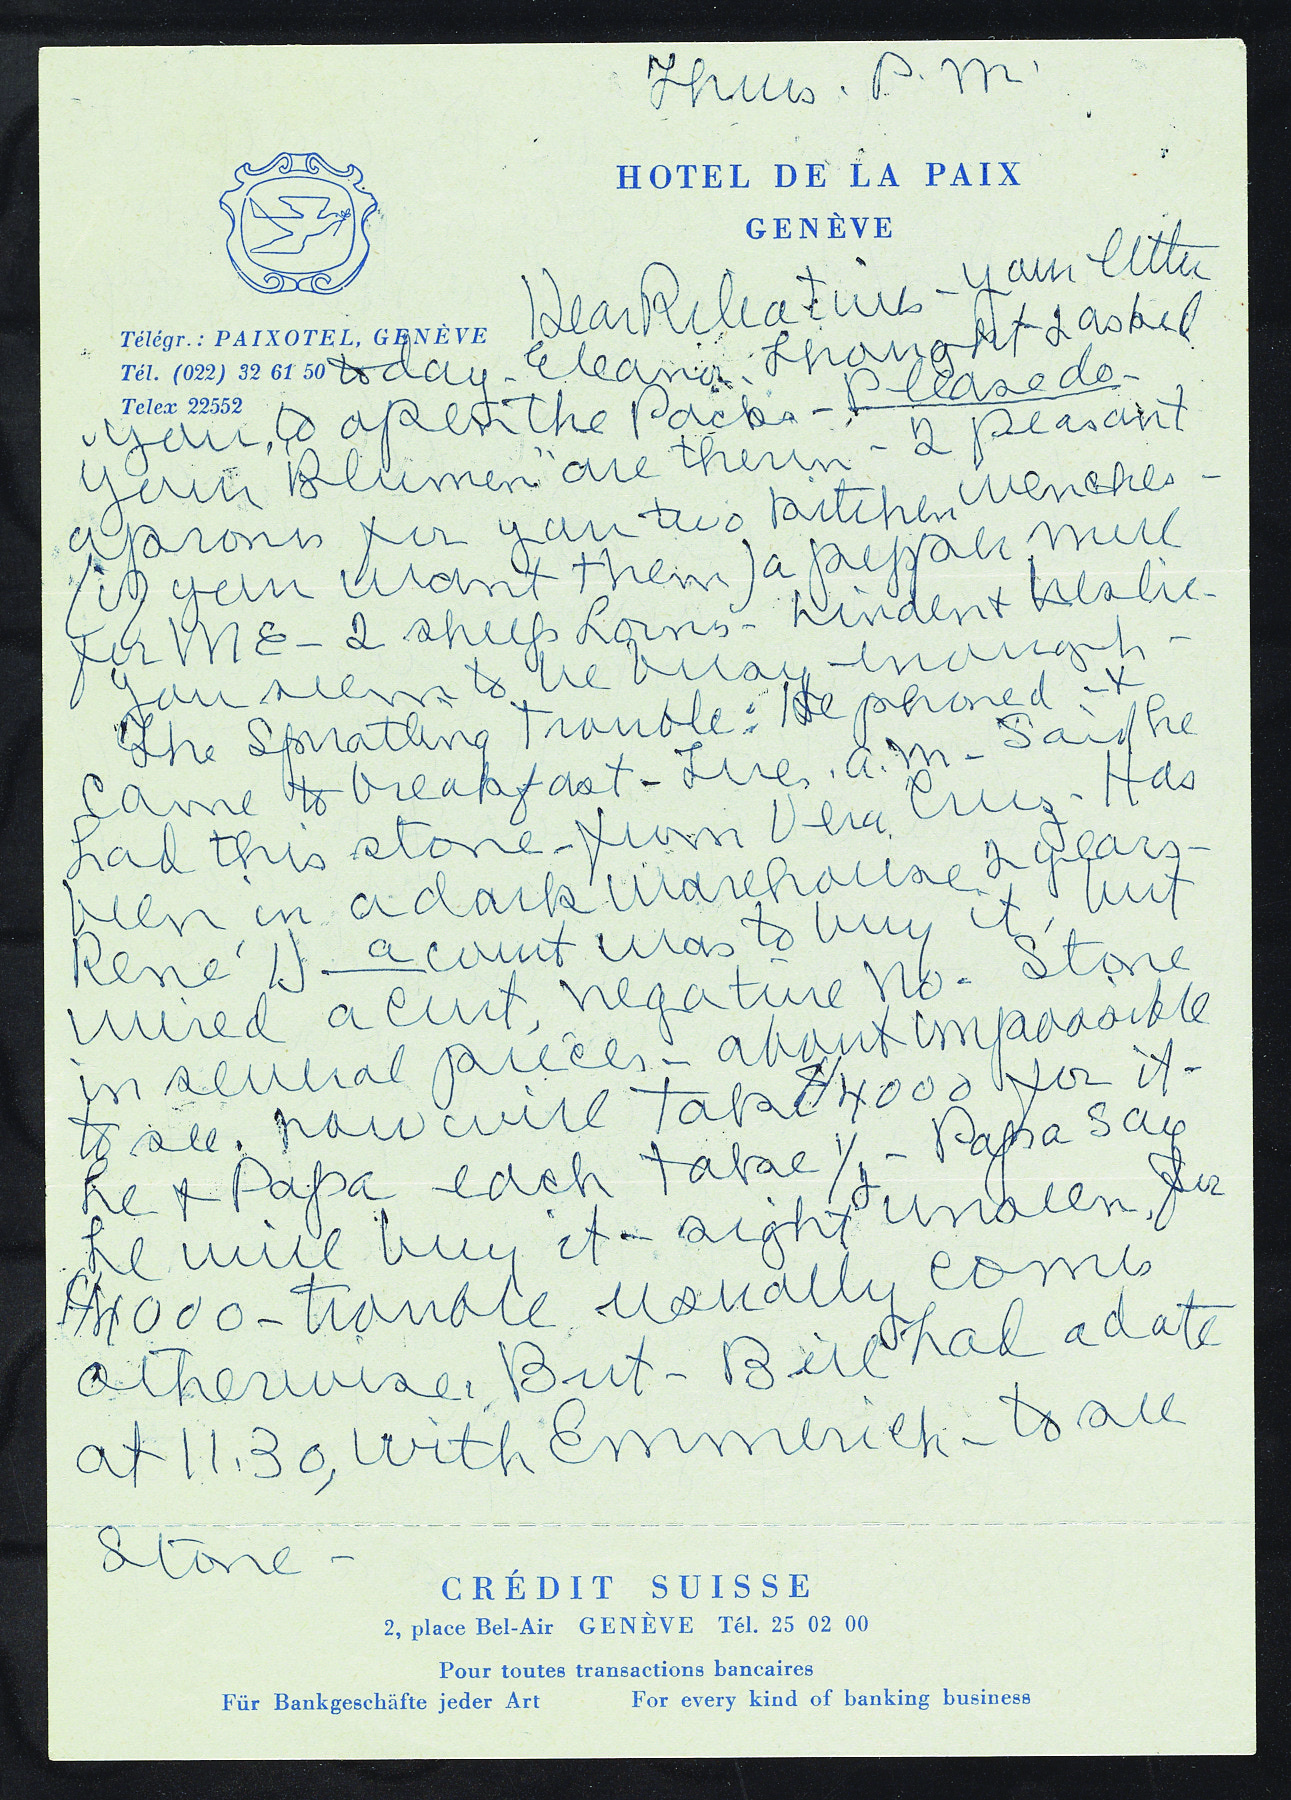 Thurs. P.M.
HOTEL DE LA PAIX
GENÈVE
Télégr.: PAIXOTEL, GENÈVE
Tél. (022) 32 61 50
Telex 22552
Dear Relatives - your letter
today - Eleanor. Thought I asked
you, to open the Packs - Please do -
your "Blumen" are therein - 2 peasant
aprons for you two kitchen wenches -
(if you want them) a pepper mill
for ME - 2 sheep horns - Linden + Leslie -
you seem to be busy enough -
The Spratling Trouble: He phoned - +
came to breakfast - Tues. a.m - Said he
had this stone - from Vera Cruz - Has
been in a dark warehouse 2 years -
René, D a count was to buy it, but
wired a curt, negative No - Stone
in several pieces - about impossible
to see. now will Take $4000 for it -
he + Papa each take 1/2 - Papa say
he will buy it - sight unseen, for
$4000 - trouble usually comes
otherwise. But - Bill had a date
at 11.30, with Emmerich - to see
Stone -
CRÉDIT SUISSE
2, place Bel-Air GENÈVE Tél. 25 02 00
Pour toutes transactions bancaires
Für Bankgeschäfte jeder Art For every kind of banking business